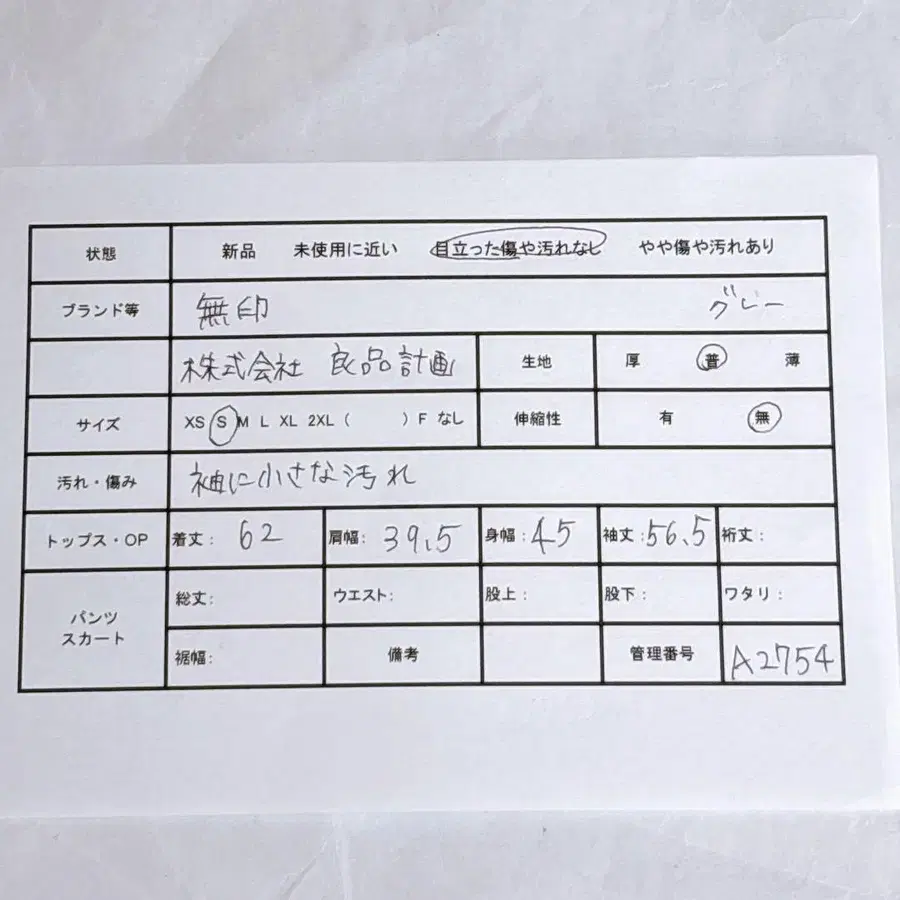 状態 新品 未使用に近い 目立った傷や汚れなし やや傷や汚れあり
ブランド等 無印 グレー
株式会社 良品計画 生地 厚 普 薄
サイズ XS S M L XL 2XL ( ) F なし 伸縮性 有 無
汚れ・傷み 袖に小さな汚れ
トップス・OP 着丈: 62 肩幅: 39.5 身幅: 45 袖丈: 56.5 裄丈:
パンツ スカート 総丈: ウエスト: 股上: 股下: ワタリ:
裾幅: 備考 管理番号 A2754